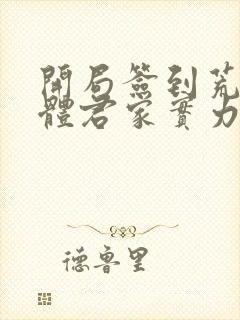 開局簽到荒
體君家實力
德魯里